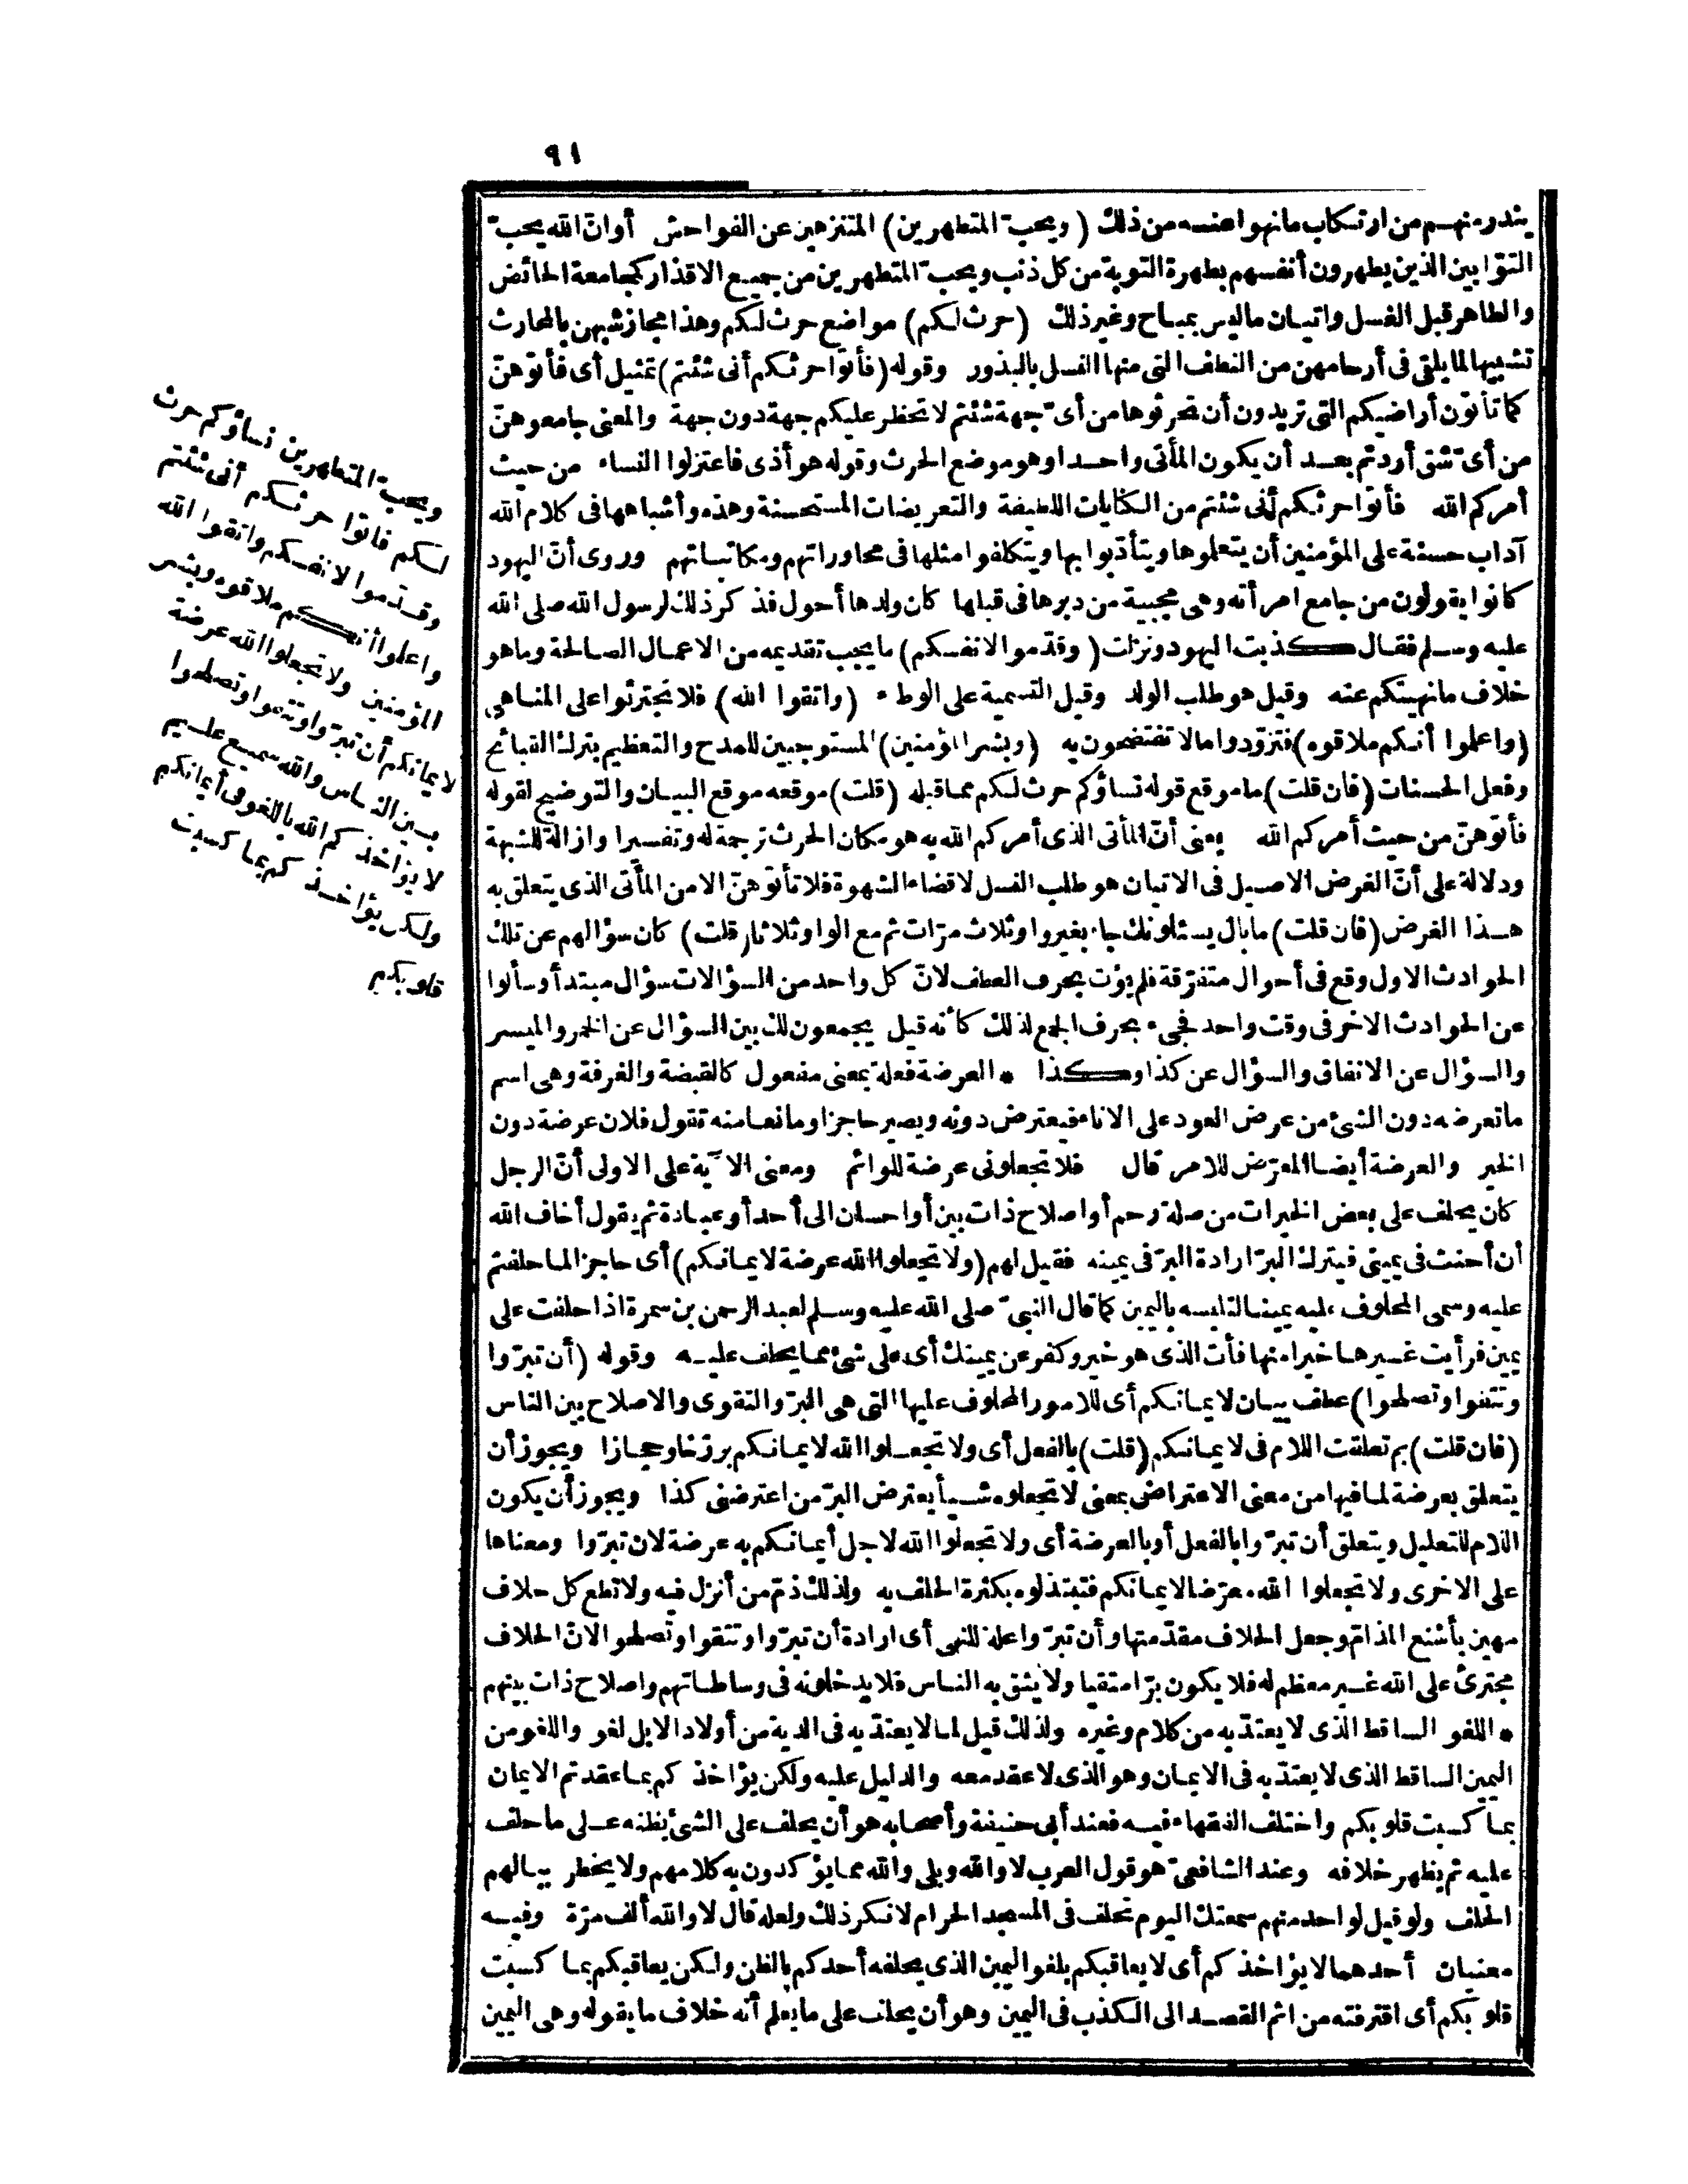 ٩١
يندر منهم من ارتكاب ما نهوا عنه من ذلك (ويحبّ المتطهرين) المتنزهين عن الفواحش أو انّ الله يحبّ
التوّابين الذين يطهرون أنفسهم بطهرة التوبة من كل ذنب ويحبّ المتطهرين من جميع الاقذار كمجامعة الحائض
والطاهر قبل الغسل واتيان ما ليس بمباح وغير ذلك (حرث لكم) مواضع حرث لكم وهذا مجاز شبهن بالمحارث
تشبيها لما يلقى فى أرحامهن من النطف التى منها النسل بالبذور وقوله (فأتوا حرثكم أنى شئتم) تمثيل أى فأتوهنّ
كما تأتون أراضيكم التى تريدون أن تحرثوها من أىّ جهة شئتم لا تحظر عليكم جهة دون جهة والمعنى جامعوهنّ
من أىّ شق أردتم بعد أن يكون المأتى واحدا وهو موضع الحرث وقوله هو أذى فاعتزلوا النساء من حيث
أمركم الله فأتوا حرثكم أنى شئتم من الكنايات اللطيفة والتعريضات المستحسنة وهذه وأشباهها فى كلام الله
آداب حسنة على المؤمنين أن يتعلموها ويتأدّبوا بها ويتكلفوا مثلها فى محاوراتهم ومكاتباتهم وروى أنّ اليهود
كانوا يقولون من جامع امرأته وهى مجبية من دبرها فى قبلها كان ولدها أحول فذكر ذلك لرسول الله صلى الله
عليه وسلم فقال كذبت اليهود ونزلت (وقدّموا لانفسكم) ما يجب تقديمه من الاعمال الصالحة وما هو
خلاف ما نهيتكم عنه وقيل هو طلب الولد وقيل التسمية على الوطء (واتقوا الله) فلا تجترئوا على المناهى
(واعلموا أنكم ملاقوه) فتزوّدوا ما لا تفتضحون به (وبشر المؤمنين) المستوجبين للمدح والتعظيم بترك القبائح
وفعل الحسنات (فان قلت) ما موقع قوله نساؤكم حرث لكم مما قبله (قلت) موقعه موقع البيان والتوضيح لقوله
فأتوهنّ من حيث أمركم الله يعنى أنّ المأتى الذى أمركم الله به هو مكان الحرث ترجمة له وتفسيرا وازالة للشبهة
ودلالة على أنّ الغرض الاصيل فى الاتيان هو طلب النسل لا قضاء الشهوة فلا تأتوهنّ الا من المأتى الذى يتعلق به
هذا الغرض (فان قلت) ما بال يسئلونك جاء بغير واو ثلاث مرّات ثم مع الواو ثلاثا (قلت) كان سؤالهم عن تلك
الحوادث الاول وقع فى أحوال متفرّقة فلم يؤت بحرف العطف لانّ كل واحد من السؤالات سؤال مبتدأ وسألوا
عن الحوادث الاخر فى وقت واحد فجىء بحرف الجمع لذلك كأنه قيل يجمعون لك بين السؤال عن الخمر والميسر
والسؤال عن الانفاق والسؤال عن كذا وكذا * العرضة فعلة بمعنى مفعول كالقبضة والغرفة وهى اسم
ما تعرضه دون الشئ من عرض العود على الاناء فيعترض دونه ويصير حاجزا ومانعا منه تقول فلان عرضة دون
الخير والعرضة أيضا المعرّض للامر قال فلا تجعلونى عرضة للوائم ومعنى الآية على الاولى أنّ الرجل
كان يحلف على بعض الخيرات من صلة رحم أو اصلاح ذات بين أو احسان الى أحد أو عبادة ثم يقول أخاف الله
أن أحنث فى يمينى فيترك البرّ ارادة البرّ فى يمينه فقيل لهم (ولا تجعلوا الله عرضة لايمانكم) أى حاجزا لما حلفتم
عليه وسمى المحلوف عليه يمينا لتلبسه باليمين كما قال النبىّ صلى الله عليه وسلم لعبد الرحمن بن سمرة اذا حلفت على
يمين فرأيت غيرها خيرا منها فأت الذى هو خير وكفر عن يمينك أى على شئ مما يحلف عليه وقوله (أن تبرّوا
وتتقوا وتصلحوا) عطف بيان لايمانكم أى للامور المحلوف عليها التى هى البرّ والتقوى والاصلاح بين الناس
(فان قلت) بم تعلقت اللام فى لايمانكم (قلت) بالفعل أى ولا تجعلوا الله لايمانكم برزخا وحجازا ويجوز أن
يتعلق بعرضة لما فيها من معنى الاعتراض بمعنى لا تجعلوه شيأ يعترض البرّ من اعترضنى كذا ويجوز أن يكون
اللام للتعليل ويتعلق أن تبرّوا بالفعل أو بالعرضة أى ولا تجعلوا الله لاجل أيمانكم به عرضة لان تبرّوا ومعناها
على الاخرى ولا تجعلوا الله معرّضا لايمانكم فتبتذلوه بكثرة الحلف به ولذلك ذمّ من أنزل فيه ولا تطع كل حلاف
مهين بأشنع المذامّ وجعل الحلاف مقدّمتها وأن تبرّوا علة للنهى أى ارادة أن تبرّوا وتتقوا وتصلحوا لانّ الحلاف
مجترئ على الله غير معظم له فلا يكون برّا متقيا ولا يثق به الناس فلا يدخلونه فى وساطاتهم واصلاح ذات بينهم
* اللغو الساقط الذى لا يعتدّ به من كلام وغيره ولذلك قيل لما لا يعتدّ به فى الدية من أولاد الابل لغو واللغو من
اليمين الساقط الذى لا يعتدّ به فى الايمان وهو الذى لا عقد معه والدليل عليه ولكن يؤاخذكم بما عقدتم الايمان
بما كسبت قلوبكم واختلف الفقهاء فيه فعند أبى حنيفة وأصحابه هو أن يحلف على الشئ يظنه على ما حلف
عليه ثم يظهر خلافه وعند الشافعىّ هو قول العرب لا والله وبلى والله مما يؤكدون به كلامهم ولا يخطر ببالهم
الحلف ولو قيل لواحد منهم سمعتك اليوم تحلف فى المسجد الحرام لانكر ذلك ولعله قال لا والله ألف مرّة وفيه
معنيان أحدهما لا يؤاخذكم أى لا يعاقبكم بلغو اليمين الذى يحلفه أحدكم بالظن ولكن يعاقبكم بما كسبت
قلوبكم أى اقترفته من اثم القصد الى الكذب فى اليمين وهو أن يحلف على ما يعلم أنه خلاف ما يقوله وهى اليمين
ويحبّ المتطهرين نساؤكم حرث
لكم فاتوا حرثكم أنى شئتم
وقدّموا لانفسكم واتقوا الله
واعلموا أنكم ملاقوه وبشر
المؤمنين ولا تجعلوا الله عرضة
لايمانكم أن تبرّوا وتتقوا وتصلحوا
بين الناس والله سميع عليم
لا يؤاخذكم الله باللغو فى أيمانكم
ولكن يؤاخذكم بما كسبت
قلوبكم